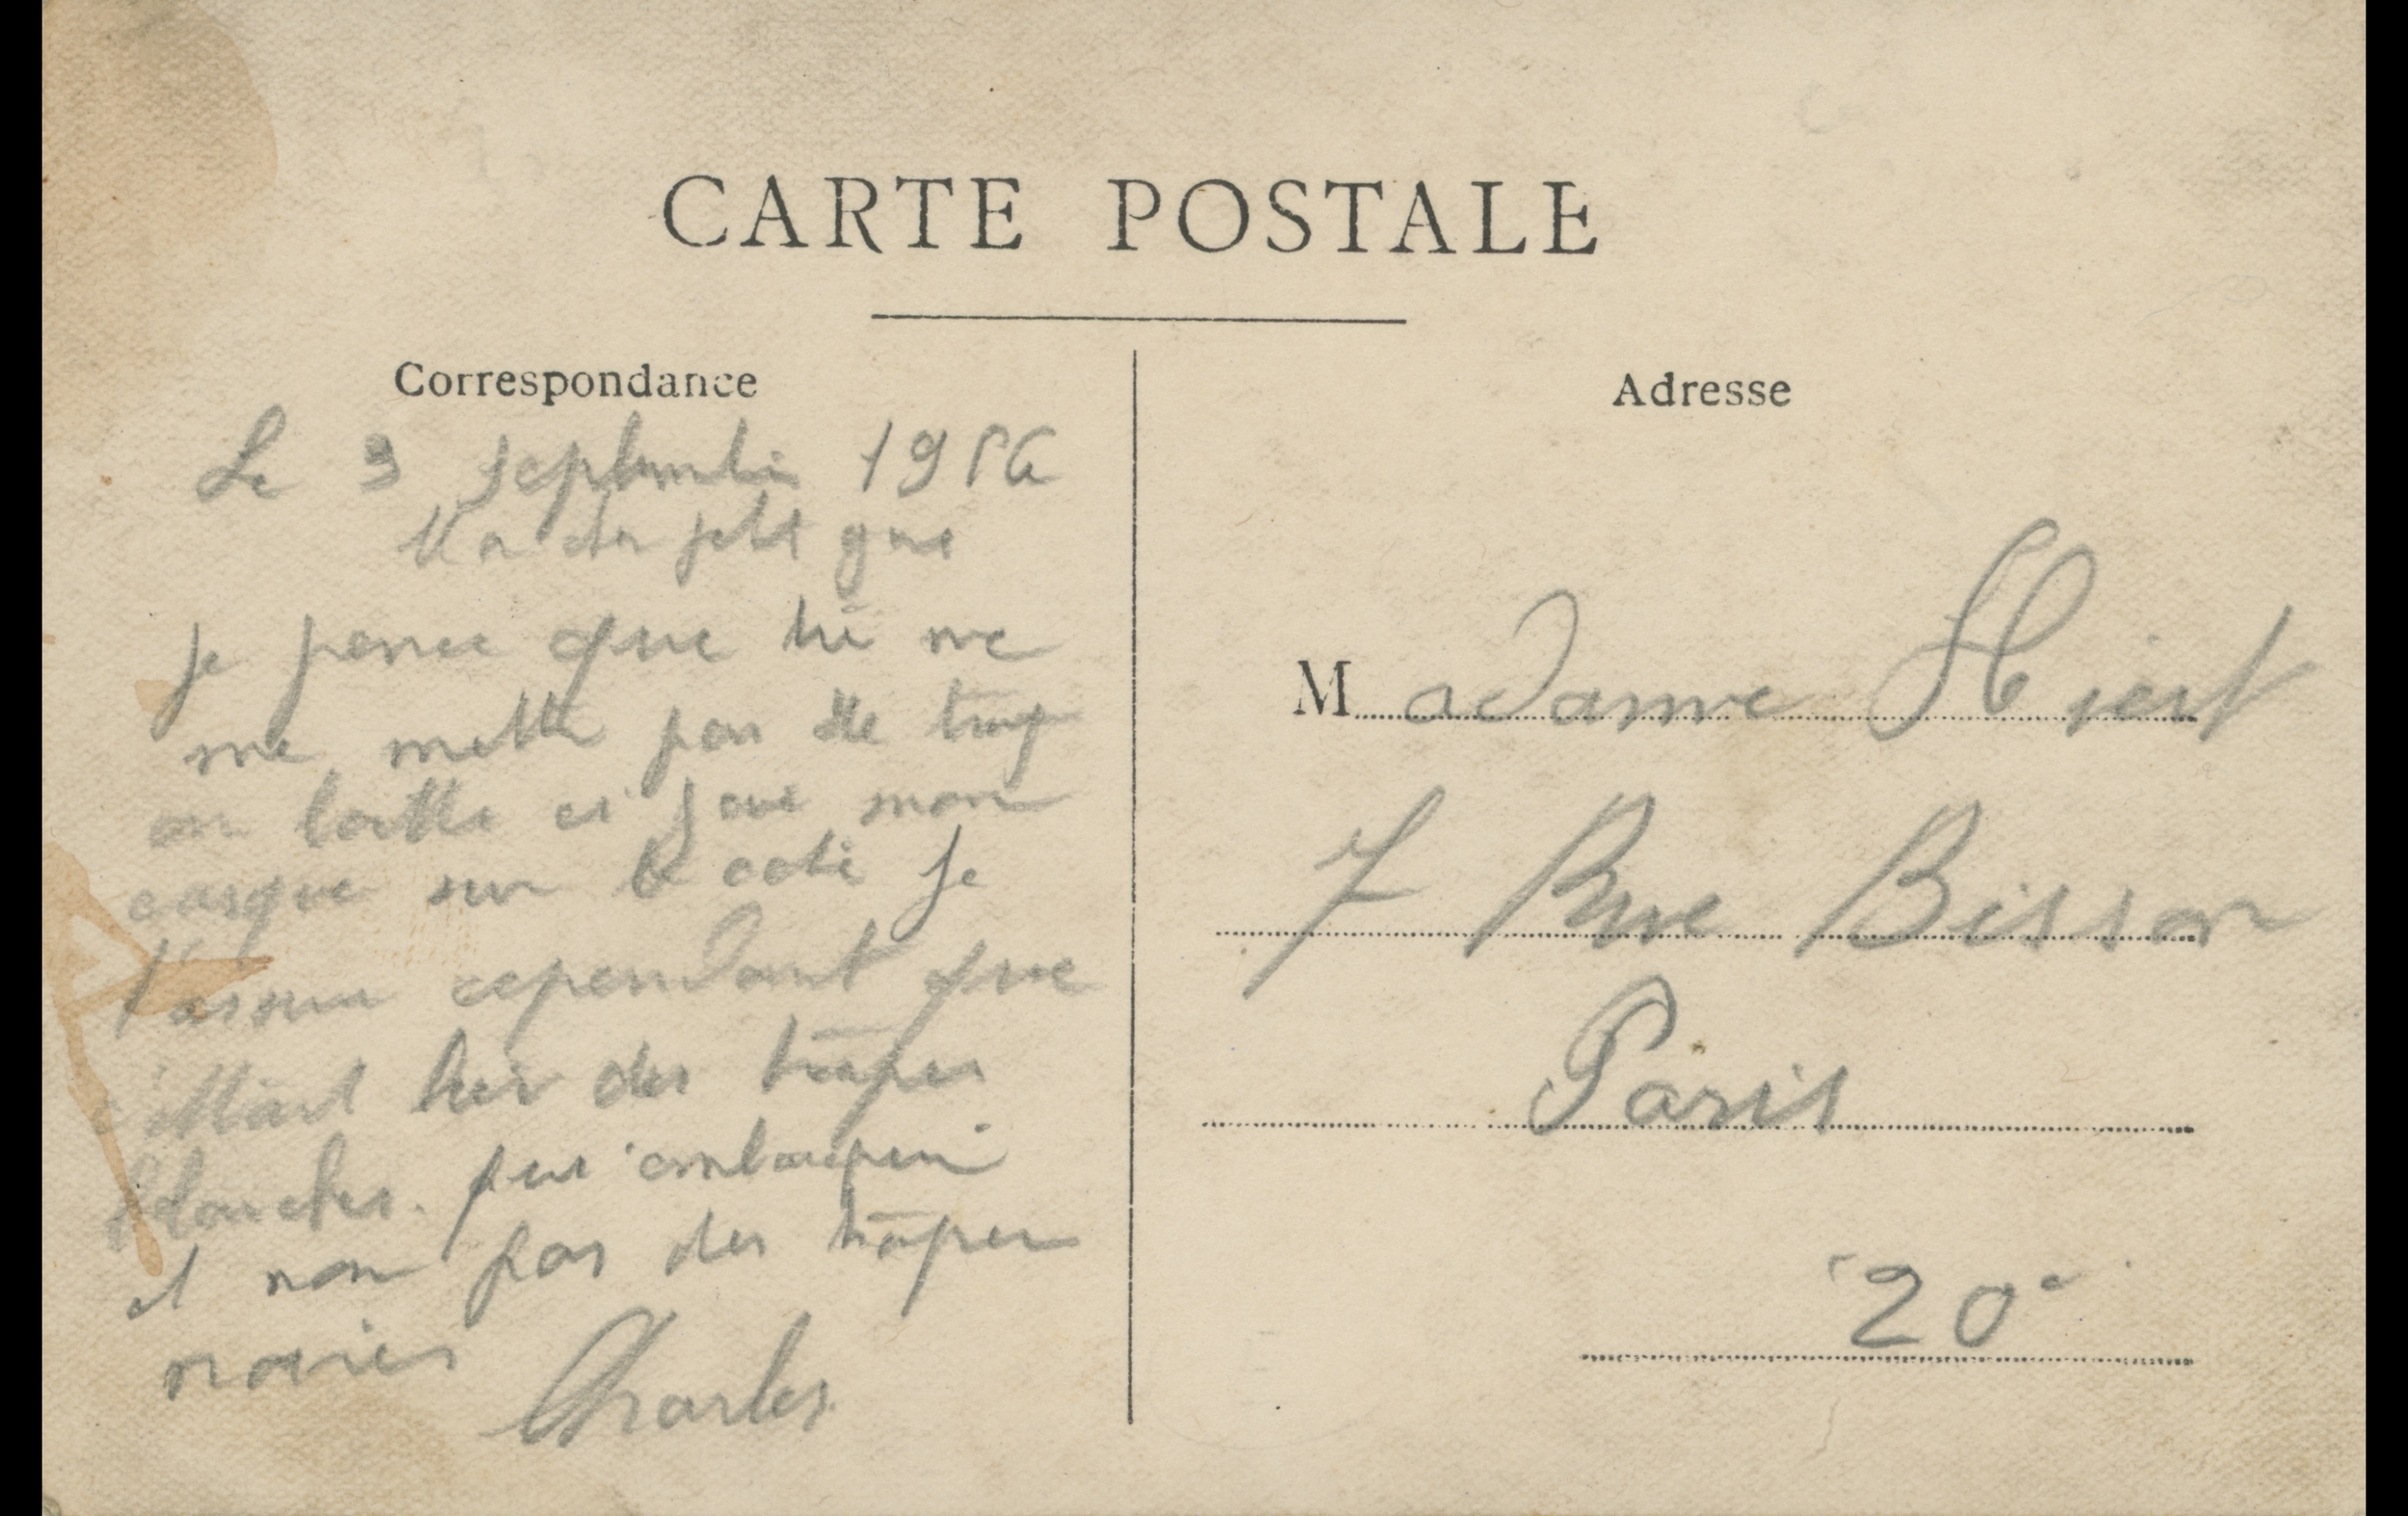 CARTE POSTALE
Correspondance
Le 3 septembre 19
Ma petit gue
je pense que tu ne
me mettr pas de trop
en boitte si j'avai mon
casque sur le coté je
t'assure cependant que
c'ettait hier des troupes
blanches. pur
et non pas des troupes
noires
Charles
Adresse
Madame
7 Rue Bisson
Paris
20e